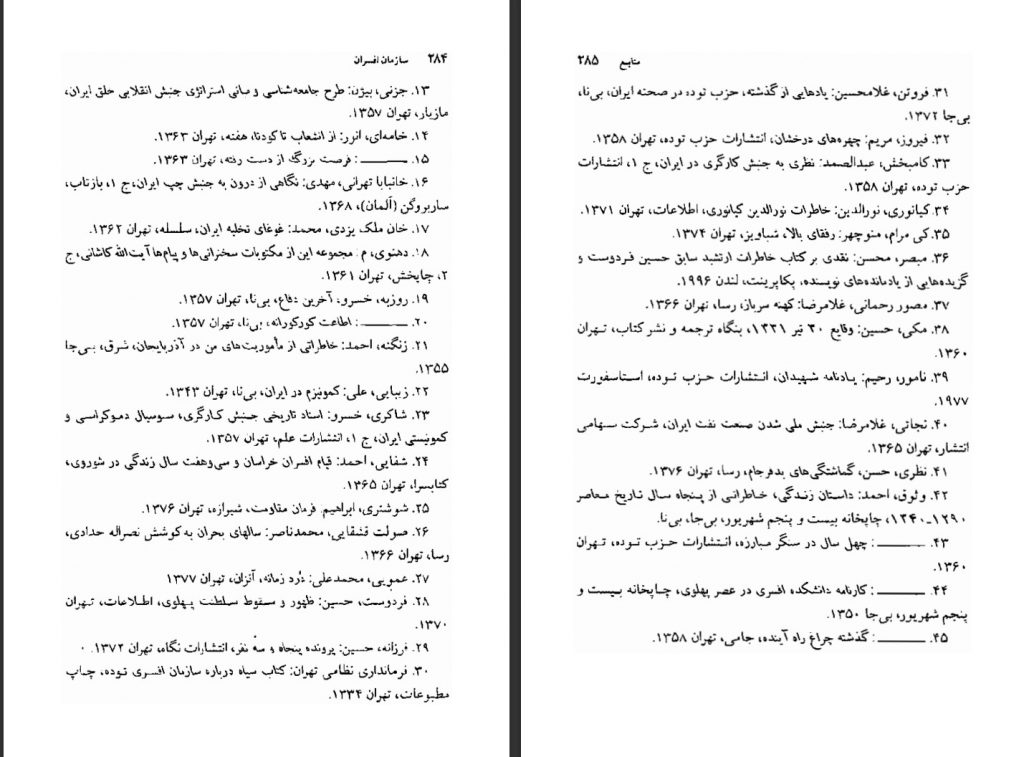 ۲۸۴ سازمان افسران
۱۳. جزنی، بیژن: طرح جامعه‌شناسی و مبانی استراتژی جنبش انقلابی خلق ایران،
مازیار، تهران ۱۳۵۷.
۱۴. خامه‌ای، انور: از انشعاب تا کودتا، هفته، تهران ۱۳۶۳.
۱۵. ـــــــــ : فرصت بزرگ از دست رفته، تهران ۱۳۶۳.
۱۶. خانبابا تهرانی، مهدی: نگاهی از درون به جنبش چپ ایران، ج ۱، بازتاب،
ساربروگن (آلمان)، ۱۳۶۸.
۱۷. خان ملک یزدی، محمد: غوغای تخلیه ایران، سلسله، تهران ۱۳۶۲.
۱۸. دهنوی، م: مجموعه این از مکتوبات سخنرانی‌ها و پیام‌ها آیت‌الله کاشانی، ج
۲، چاپخش، تهران ۱۳۶۱.
۱۹. روزبه، خسرو، آخرین دفاع، بی‌نا، تهران ۱۳۵۷.
۲۰. ـــــــــ : اطاعت کورکورانه، بی‌نا، تهران ۱۳۵۷.
۲۱. زنگنه، احمد: خاطراتی از مأموریت‌های من در آذربایجان، شرق، بی‌جا
۱۳۵۵.
۲۲. زیبایی، علی: کمونیزم در ایران، بی‌نا، تهران ۱۳۴۳.
۲۳. شاکری، خسرو: اسناد تاریخی جنبش کارگری، سوسیال دموکراسی و
کمونیستی ایران، ج ۱، انتشارات علم، تهران ۱۳۵۷.
۲۴. شفایی، احمد: قیام افسران خراسان و سی‌وهفت سال زندگی در شوروی،
کتابسرا، تهران ۱۳۶۵.
۲۵. شوشتری، ابراهیم: فرمان مقاومت، شیرازه، تهران ۱۳۷۶.
۲۶. صولت قشقایی، محمدناصر: سالهای بحران به‌کوشش نصراله حدادی،
رسا، تهران ۱۳۶۶.
۲۷. عمویی، محمدعلی: دُرد زمانه، آنزان، تهران ۱۳۷۷
۲۸. فردوست، حسین: ظهور و سقوط سلطنت پهلوی، اطلاعات، تهران
۱۳۷۰.
۲۹. فرزانه، حسین: پرونده پنجاه و سه نفر، انتشارات نگاه، تهران ۱۳۷۲.
۳۰. فرمانداری نظامی تهران: کتاب سیاه درباره سازمان افسری توده، چاپ
مطبوعات، تهران ۱۳۳۴.
منابع ۲۸۵
۳۱. فروتن، غلامحسین: یادهایی از گذشته، حزب توده در صحنه ایران، بی‌نا،
بی‌جا ۱۳۷۲.
۳۲. فیروز، مریم: چهره‌های درخشان، انتشارات حزب توده، تهران ۱۳۵۸.
۳۳. کامبخش، عبدالصمد: نظری به جنبش کارگری در ایران، ج ۱، انتشارات
حزب توده، تهران ۱۳۵۸.
۳۴. کیانوری، نورالدین: خاطرات نورالدین کیانوری، اطلاعات، تهران ۱۳۷۱.
۳۵. کی مرام، منوچهر: رفقای بالا، شباویز، تهران ۱۳۷۴.
۳۶. مبصر، محسن: نقدی بر کتاب خاطرات ارتشبد سابق حسین فردوست و
گزیده‌هایی از یادمانده‌های نویسنده، پکاپرینت، لندن ۱۹۹۶.
۳۷. مصور رحمانی، غلامرضا: کهنه سرباز، رسا، تهران ۱۳۶۶.
۳۸. مکی، حسین: وقایع ۳۰ تیر ۱۳۳۱، بنگاه ترجمه و نشر کتاب، تهران
۱۳۶۰.
۳۹. نامور، رحیم: یادنامه شهیدان، انتشارات حزب توده، استاسفورت
۱۹۷۷.
۴۰. نجاتی، غلامرضا: جنبش ملی شدن صنعت نفت ایران، شرکت سهامی
انتشار، تهران ۱۳۶۵.
۴۱. نظری، حسن، گماشتگی‌های بدفرجام، رسا، تهران ۱۳۷۶.
۴۲. وثوق، احمد: داستان زندگی، خاطراتی از پنجاه سال تاریخ معاصر
۱۲۹۰ـ۱۳۴۰، چاپخانه بیست و پنجم شهریور، بی‌جا، بی‌نا.
۴۳. ـــــــــ : چهل سال در سنگر مبارزه، انتشارات حزب توده، تهران
۱۳۶۰.
۴۴. ـــــــــ : کارنامه دانشکده افسری در عصر پهلوی، چاپخانه بیست و
پنجم شهریور، بی‌جا ۱۳۵۰.
۴۵. ـــــــــ : گذشته چراغ راه آینده، جامی، تهران ۱۳۵۸.